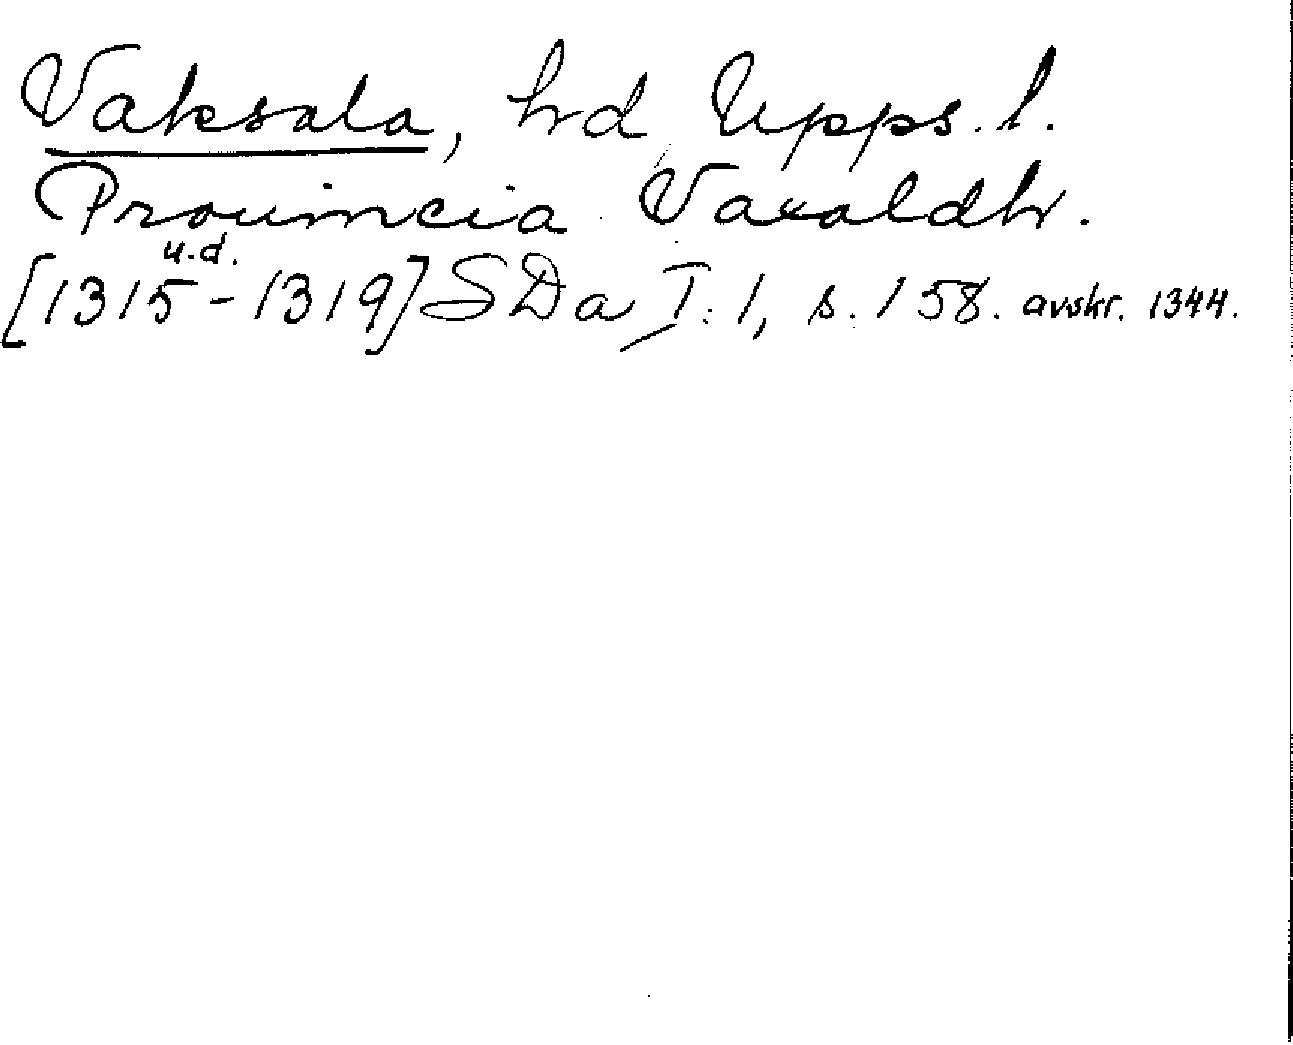 Vaksala, hd Upps. l.
Prouincia Vaxaldhr.
u.d.
[1315-1319] SDa I:1, s. 158. avskr. 1344.